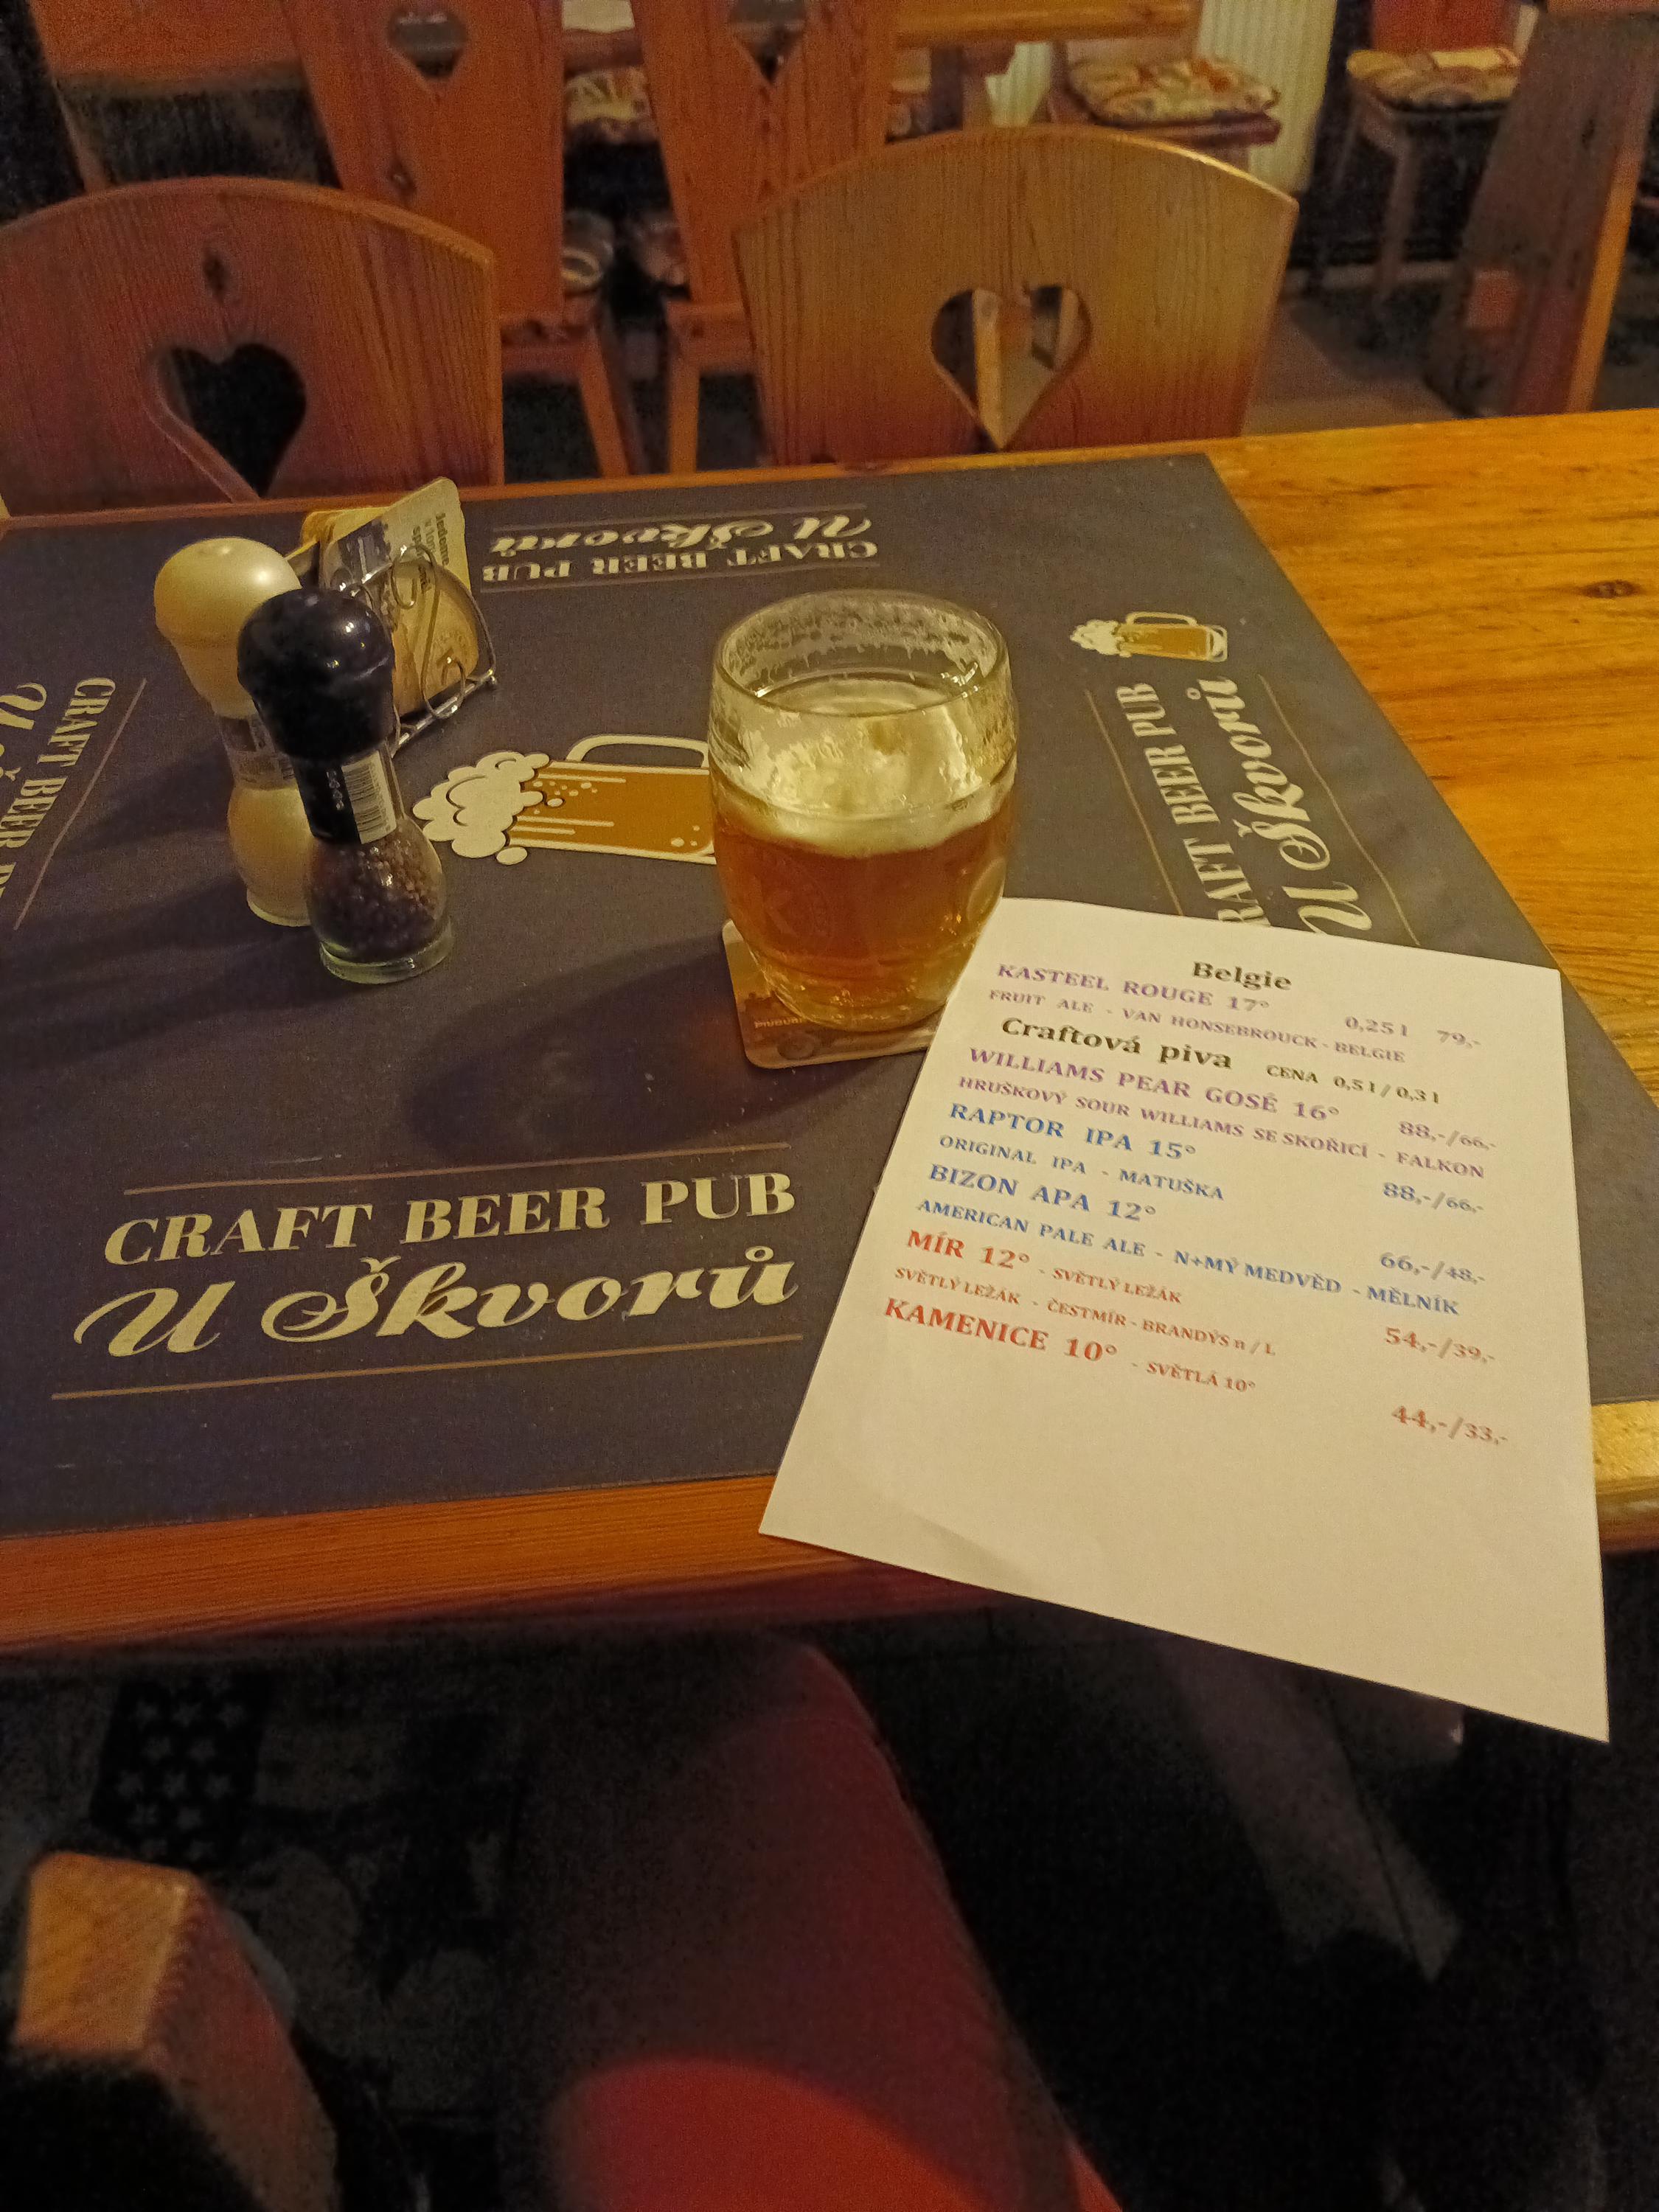 CRAFT BEER PUB
U Škvorů
CRAFT BEER
CRAFT BEER PUB
U Škvorů
CRAFT BEER PUB
U Škvorů
Belgie
KASTEEL ROUGE 17° 0,25 l 79,-
FRUIT ALE - VAN HONSEBROUCK - BELGIE
Craftová piva CENA 0,5 l / 0,3 l
WILLIAMS PEAR GOSÉ 16° 88,-/66,-
HRUŠKOVÝ SOUR WILLIAMS SE SKOŘICÍ - FALKON
RAPTOR IPA 15° 88,-/66,-
ORIGINAL IPA - MATUŠKA
BIZON APA 12° 66,-/48,-
AMERICAN PALE ALE - N+MÝ MEDVĚD - MĚLNÍK
MÍR 12° - SVĚTLÝ LEŽÁK 54,-/39,-
SVĚTLÝ LEŽÁK - ČESTMÍR - BRANDÝS n / L
KAMENICE 10° - SVĚTLÁ 10° 44,-/33,-